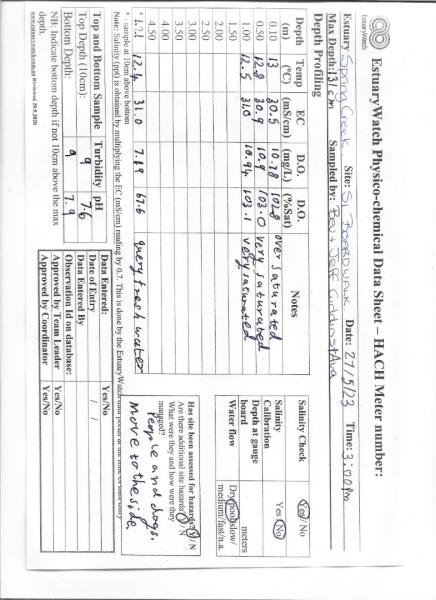 EstuaryWatch Physico-chemical Data Sheet – HACH Meter number:
EstuaryWatch
Estuary Spring Creek Site: S1 Boardwalk Date: 27/5/23 Time: 3:00pm
Max Depth: 131cm Sampled by: Bev & Jeff
Depth Profiling
Depth (m) Temp (°C) EC (mS/cm) D.O. (mg/L) D.O. (%Sat) Notes
0.10 13 30.5 10.78 102.8 over saturated
0.50 12.8 30.9 10.9 103.0 very saturated
1.00 12.5 31.0 10.94 103.1 very saturated
1.50
2.00
2.50
3.00
3.50
4.00
4.50
* 1.21 12.4 31.0 7.19 67.6 query fresh water
* - sample at 10cm above bottom
Note: Salinity (ppt) is obtained by multiplying the EC (mS/cm) reading by 0.7. This is done by the EstuaryWatch data portal at the time of data entry
Salinity Check Yes/ No
Salinity Calibration Yes/No
Depth at gauge board meters
Water flow Dry/pool/slow/
medium/fast/n.a.
Has site been assessed for hazards? Y / N
Are there additional site hazards? Y / N
What were they and how were they
managed?
People and dogs.
Move to the side.
Top and Bottom Sample Turbidity pH
Top Depth (10cm): 9 7.6
Bottom Depth: 9 7.9
NB: Indicate bottom depth if not 10cm above the max
depth.
Data Entered: Yes/No
Date of Entry / /
Data Entered By
Observation Id on database:
Approved by Team Leader Yes/No
Approved by Coordinator Yes/No
www.estuarywatch.org.au Reviewed 29.9.2020